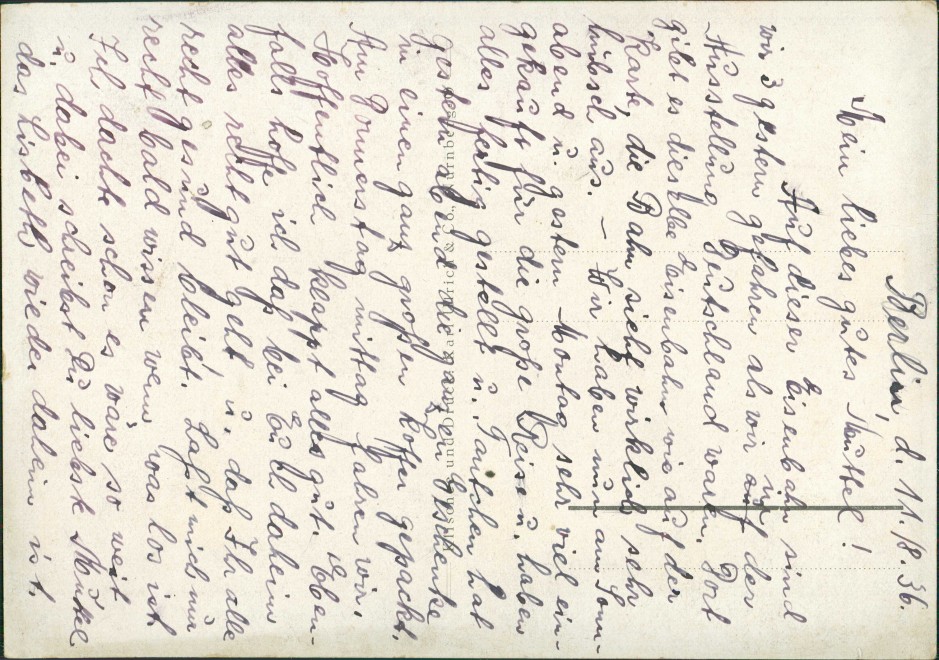 Berlin, d. 11./8.36.
Mein liebes gutes Muttel!
Auf dieser Eisenbahn sind
wir 3 gestern gefahren als wir in der
Ausstellung Deutschland waren. Dort
gibt es dieselbe Eisenbahn wie auf der
Karte, die Bahn sieht wirklich sehr
hübsch aus. – Wir haben nun am Sonn-
abend u. gestern Montag sehr viel ein-
gekauft für die große Reise u. haben
alles fertig gestellt u. Tantchen hat
gestern abend die Geschenke
in einen ganz großen Koffer gepackt.
Am Donnerstag mittag fahren wir.
Hoffentlich klappt alles gut. Eben-
falls hoffe ich daß bei Euch daheim
alles recht gut geht u. daß Ihr alle
recht gesund bleibt. Laßt mich nur
recht bald wissen wenn was los ist
Ich dachte schon es wäre so weit
u. dabei scheibst Du liebste Muttel
das Lisbeth wieder daheim ist.